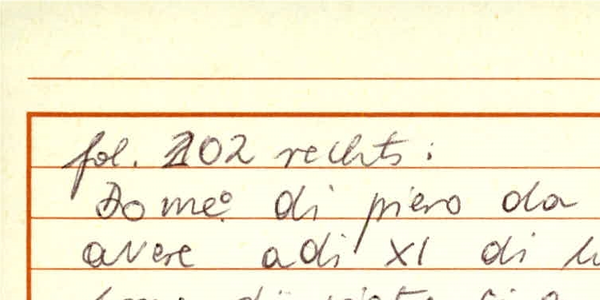 fol. 202 rechts:
Domeo di piero da
avere adi XI di